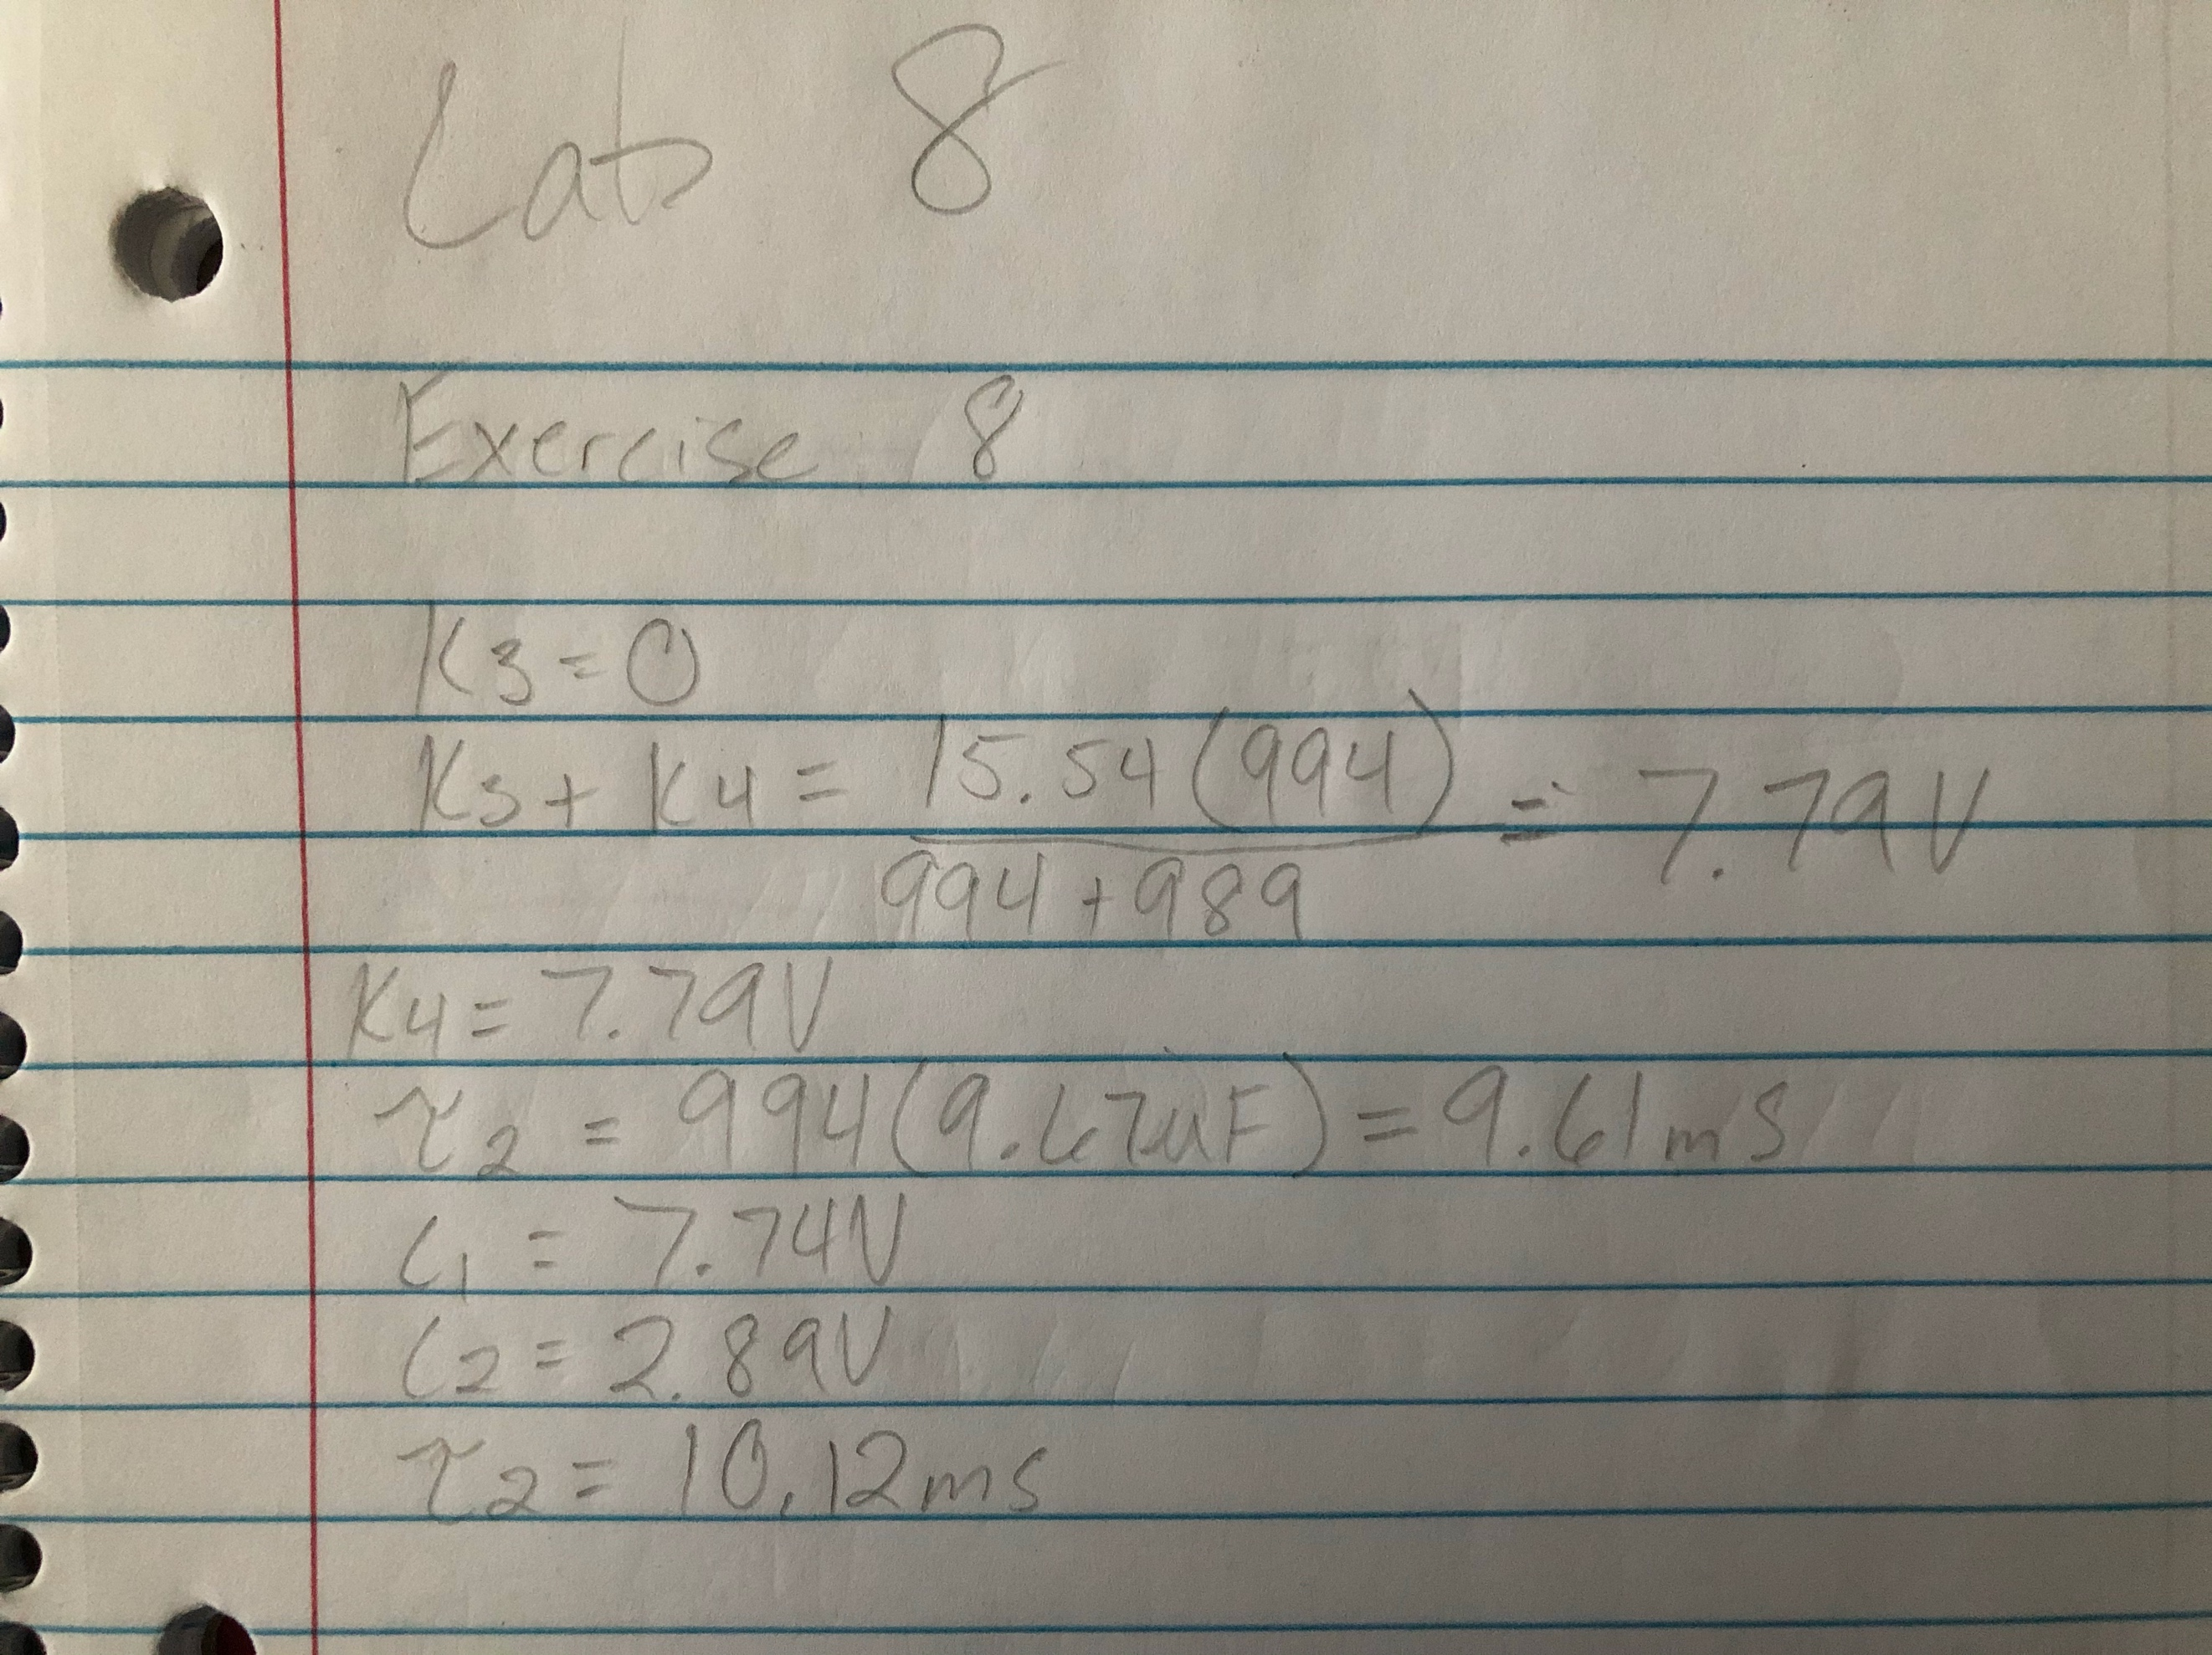 Lab 8
Exercise 8
K3 = 0
K3 + K4 = 15.54(994) / 994 + 989 = 7.79V
K4 = 7.79V
τ2 = 994(9.67uF) = 9.61ms
C1 = 7.74V
C2 = 2.89V
τ2 = 10.12ms